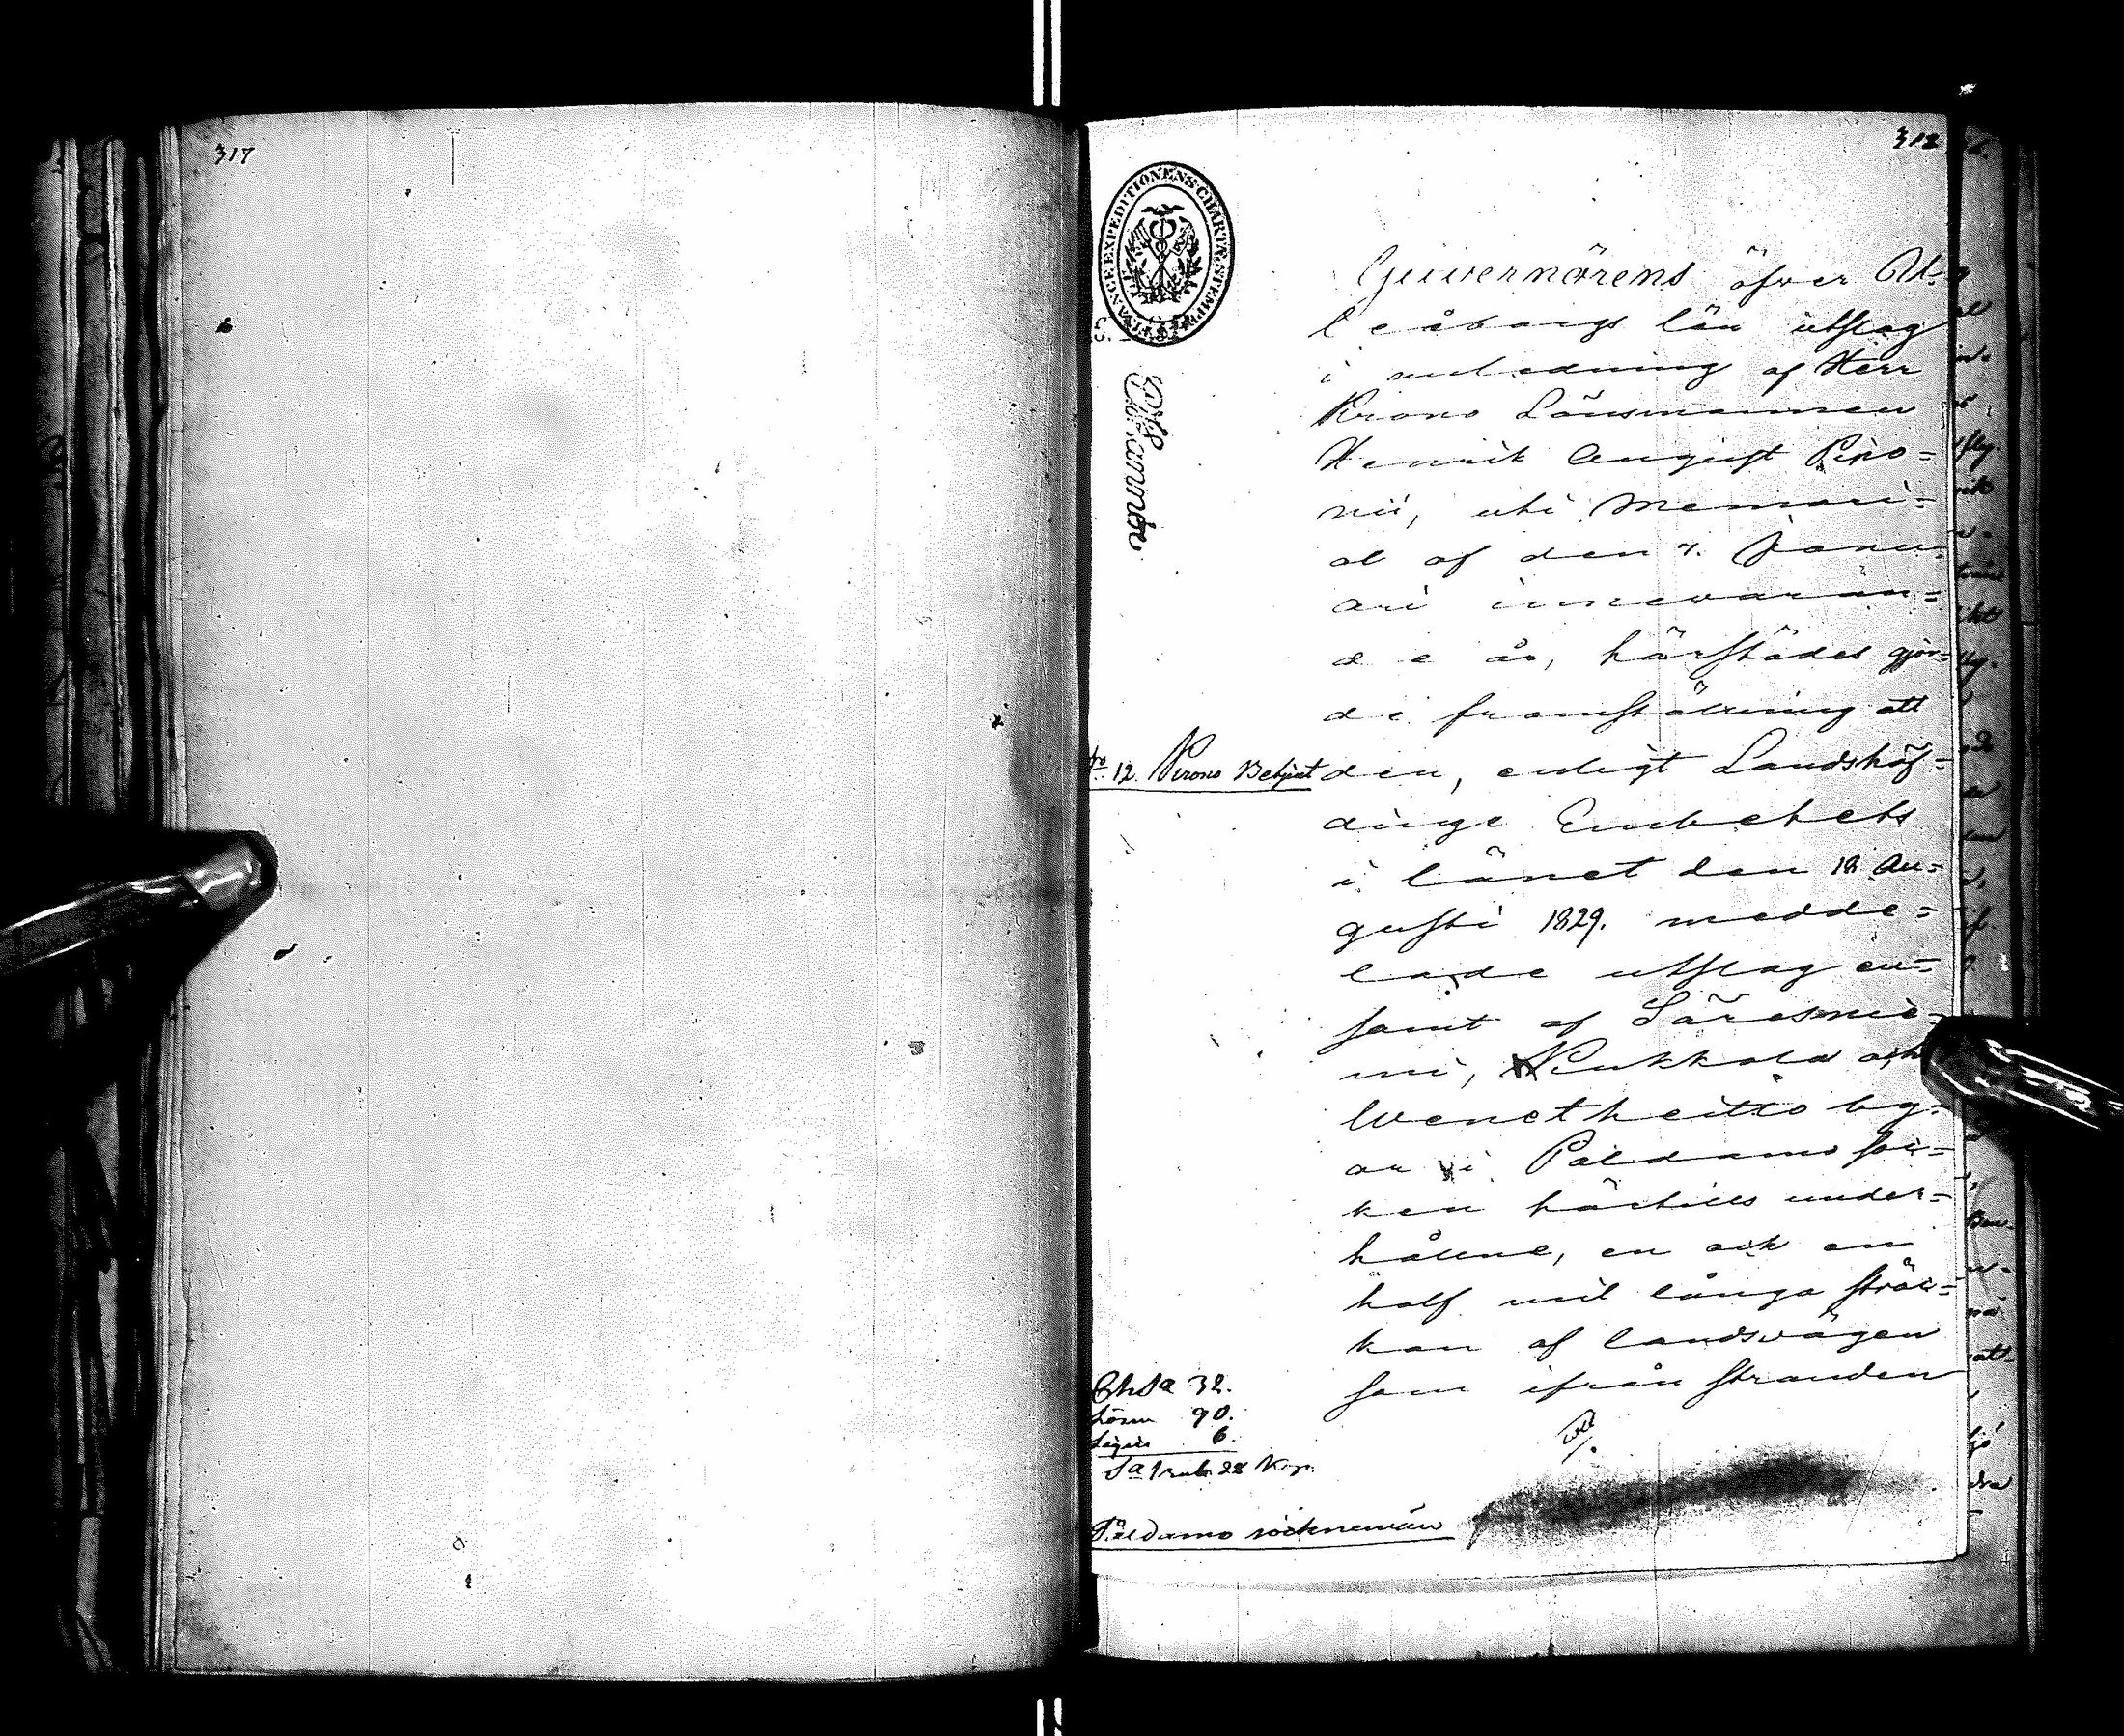 317
312
FINANCE EXPEDITIONENS CHARTÆ STEMPEL
Guvernörens öfver Ul-
leåborgs län utslag
i anledning af Herr
Krono Länsmannen
Henrik August PiPo-
nii, uti Memori-
al af den 7. Janu-
ari innevaran-
de år, härstädes gjor-
de framställning att
No 12. Krono Betjent
den, enligt Landshöf-
dinge Embetets
i länet den 18 Au-
gusti 1829. medde-
lade utslag en-
samt af Säresnie-
mi, Neukkola och
Wenetheitto by-
ar i Paldamo soc-
ken härtills under-
hållne, en och en
half mil långa sträc-
kan af landsvägen
som ifrån stranden
Ch Sa 32.
Lösen 90.
Sigill 6.
Sa 1 rub. 28 Kop.
Paldamo socknemän